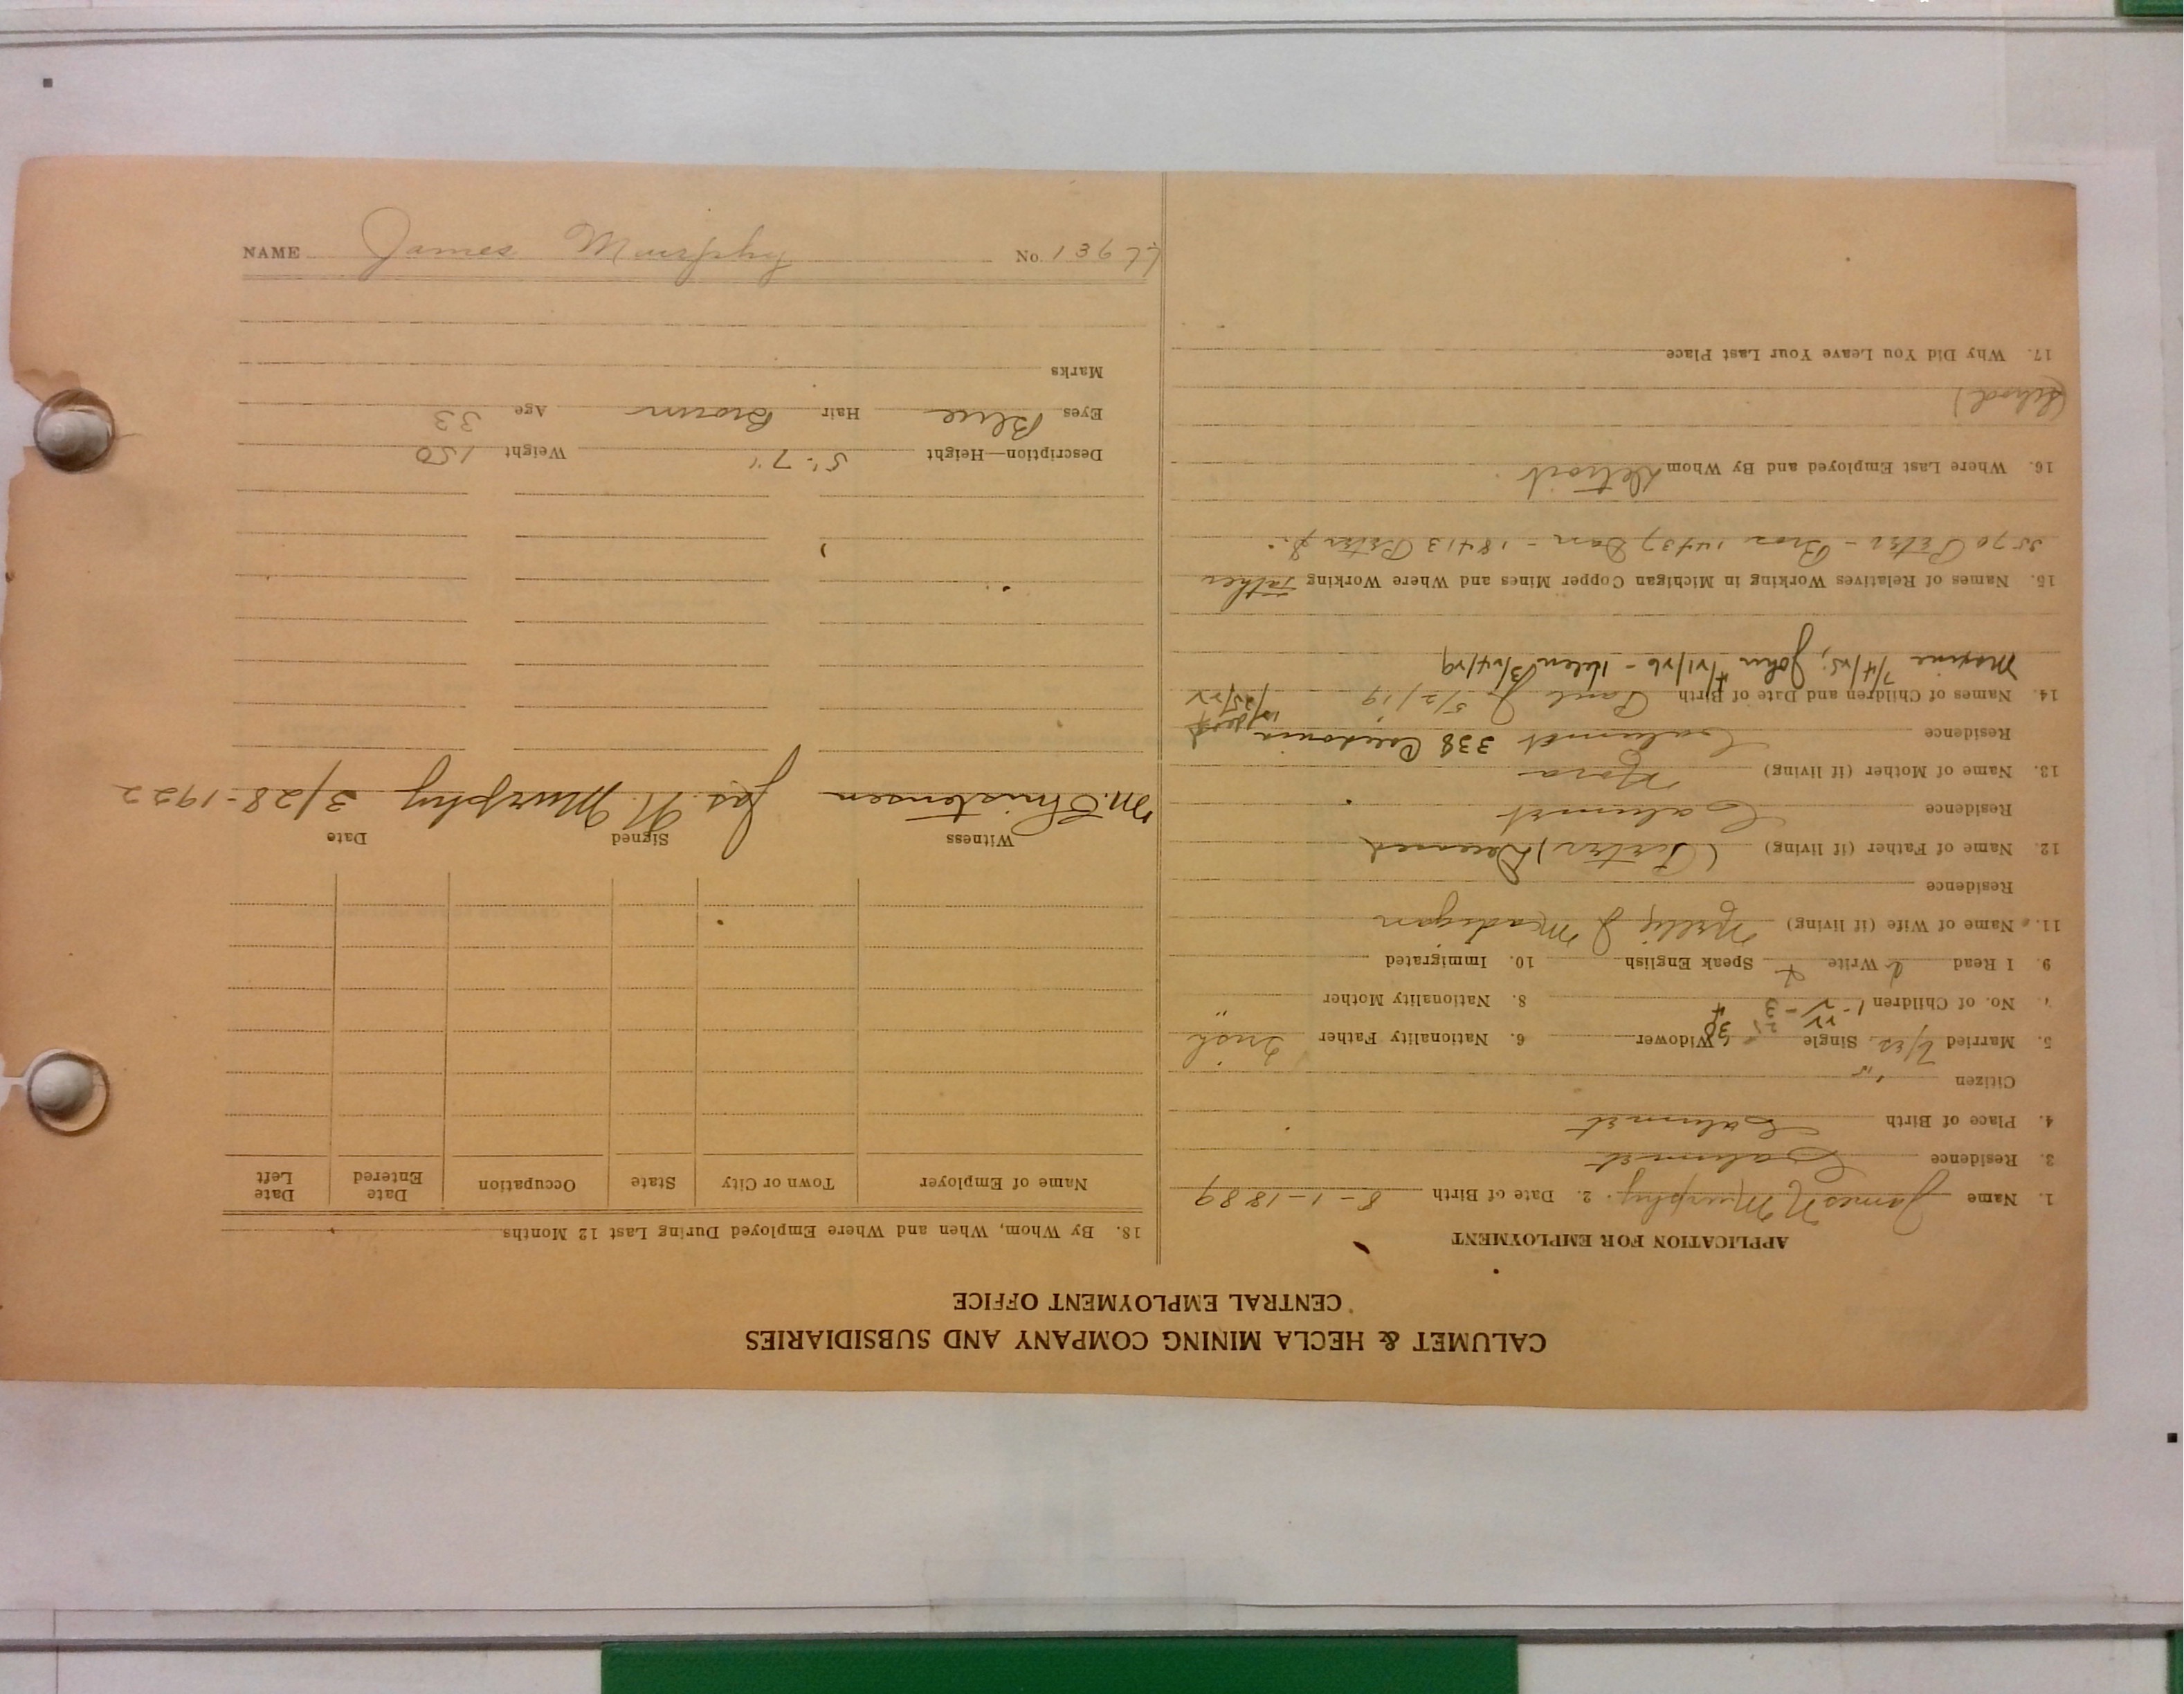 CALUMET & HECLA MINING COMPANY AND SUBSIDIARIES
CENTRAL EMPLOYMENT OFFICE
APPLICATION FOR EMPLOYMENT
1. Name James N Murphy. 2. Date of Birth 8-1-1889
3. Residence Calumet
4. Place of Birth Calumet
Citizen "
5. Married Yes Single Widower 6. Nationality Father Irish
7. No. of Children 1-2-3 4 8. Nationality Mother "
9. I Read & Write & Speak English 10. Immigrated
11. Name of Wife (if living) Nellie J Madigan
Residence
12. Name of Father (if living) (Peter) Deceased
Residence Calumet
13. Name of Mother (if living) Nora
Residence Calumet 338 Caledonia
14. Names of Children and Date of Birth Paul J 5/2/19
Maxine 7/4/25; John 4/21/26 - Helen 3/24/29
15. Names of Relatives Working in Michigan Copper Mines and Where Working Father
3570 Peter - Bros 14437 Dan - 18413 Peter J.
16. Where Last Employed and By Whom Detroit
(School)
17. Why Did You Leave Your Last Place
18. By Whom, When and Where Employed During Last 12 Months
Name of Employer Town or City State Occupation Date Entered Date Left
Witness Signed Date
M. Christensen Jas. N. Murphy 3/28-1922
Description—Height 5'-7" Weight 150
Eyes Blue Hair Brown Age 33
Marks
NAME James Murphy No.